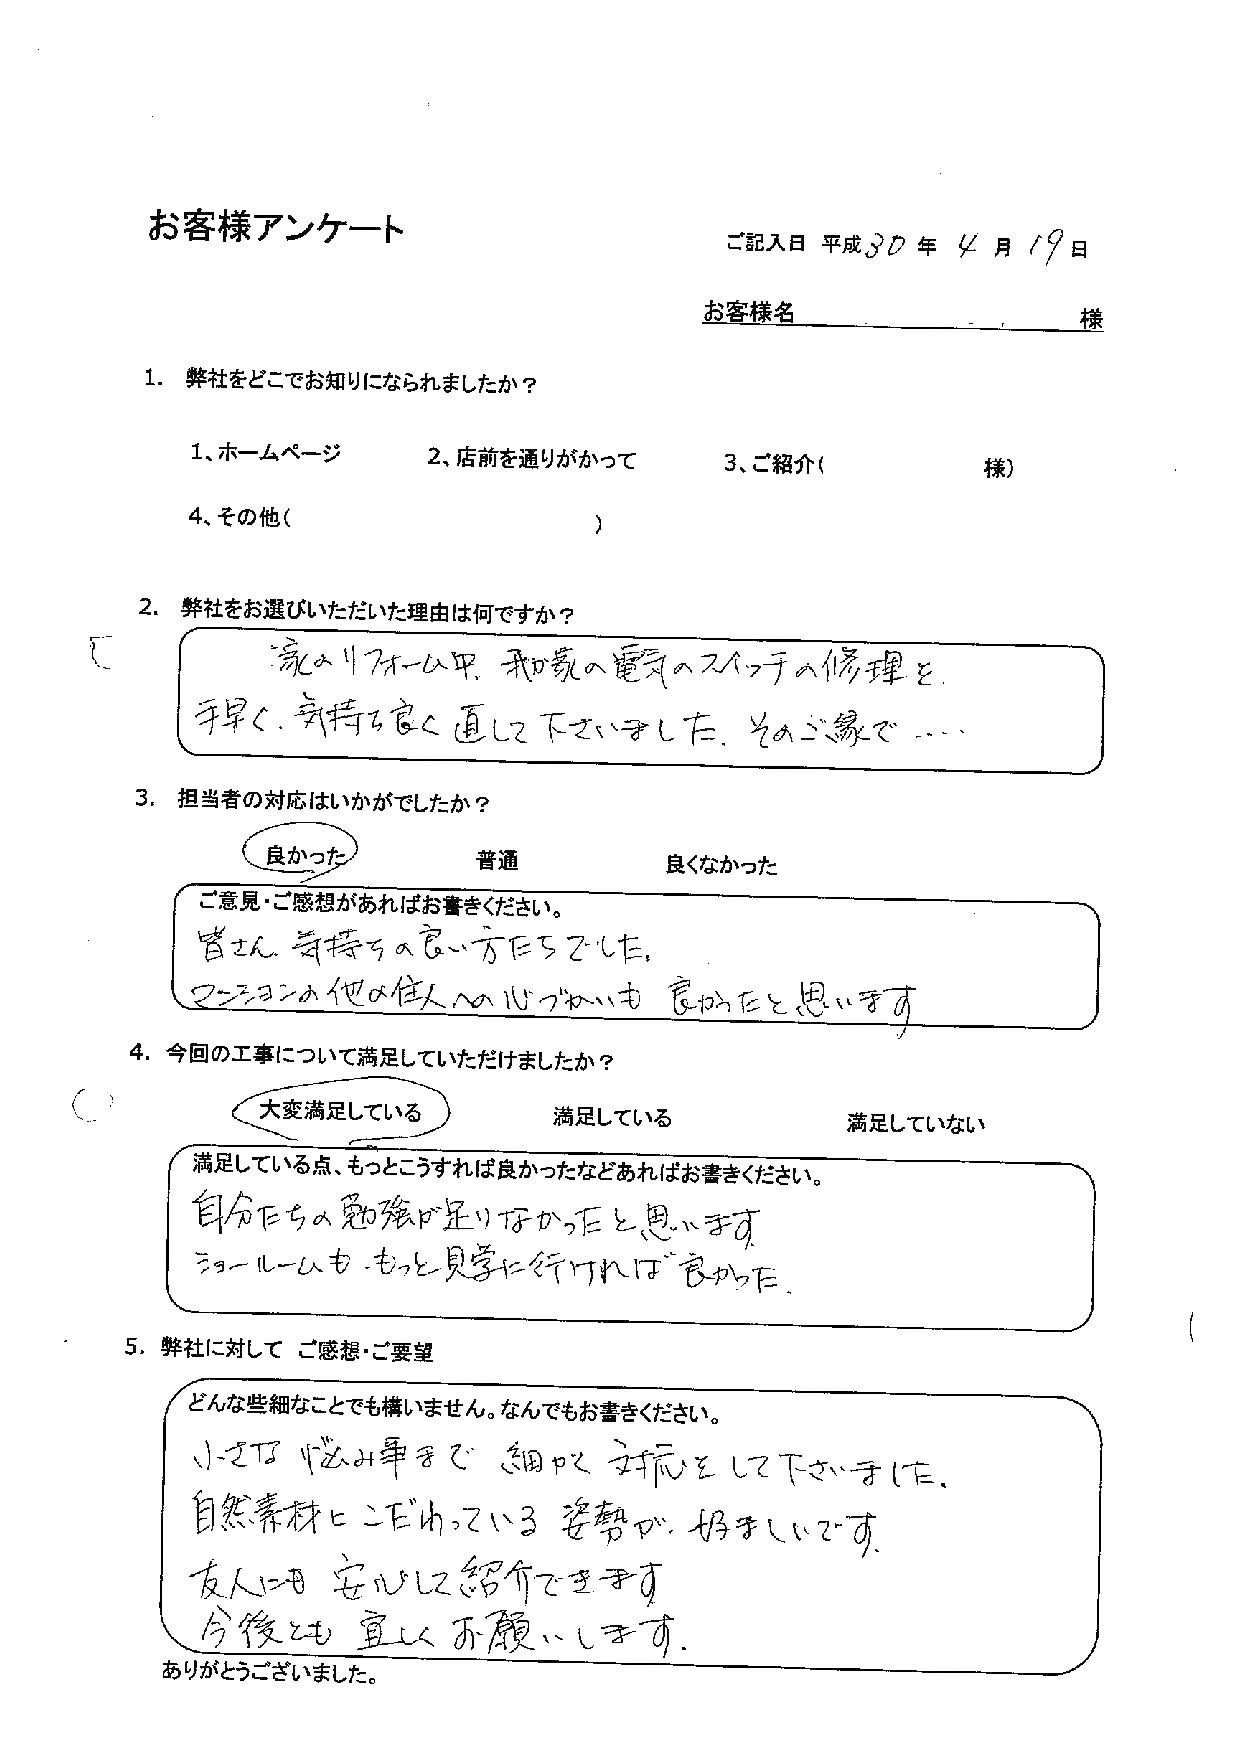 お客様アンケート
ご記入日 平成30年 4月 19日
お客様名 様
1. 弊社をどこでお知りになられましたか?
1、ホームページ 2、店前を通りがかって 3、ご紹介( 様)
4、その他( )
2. 弊社をお選びいただいた理由は何ですか?
家のリフォーム中、我が家の電気のスイッチの修理を、
手早く、気持ち良く直して下さいました。そのご縁で……
3. 担当者の対応はいかがでしたか?
良かった 普通 良くなかった
ご意見・ご感想があればお書きください。
皆さん、気持ちの良い方たちでした。
マンションの他の住人への心づかいも 良かったと思います
4. 今回の工事について満足していただけましたか?
大変満足している 満足している 満足していない
満足している点、もっとこうすれば良かったなどあればお書きください。
自分たちの勉強が足りなかったと思います
ショールームも、もっと見学に行ければ良かった。
5. 弊社に対して ご感想・ご要望
どんな些細なことでも構いません。なんでもお書きください。
小さな悩み事まで 細かく 対応をして下さいました。
自然素材にこだわっている 姿勢が、好ましいです。
友人にも 安心して紹介できます
今後とも 宜しくお願いします。
ありがとうございました。